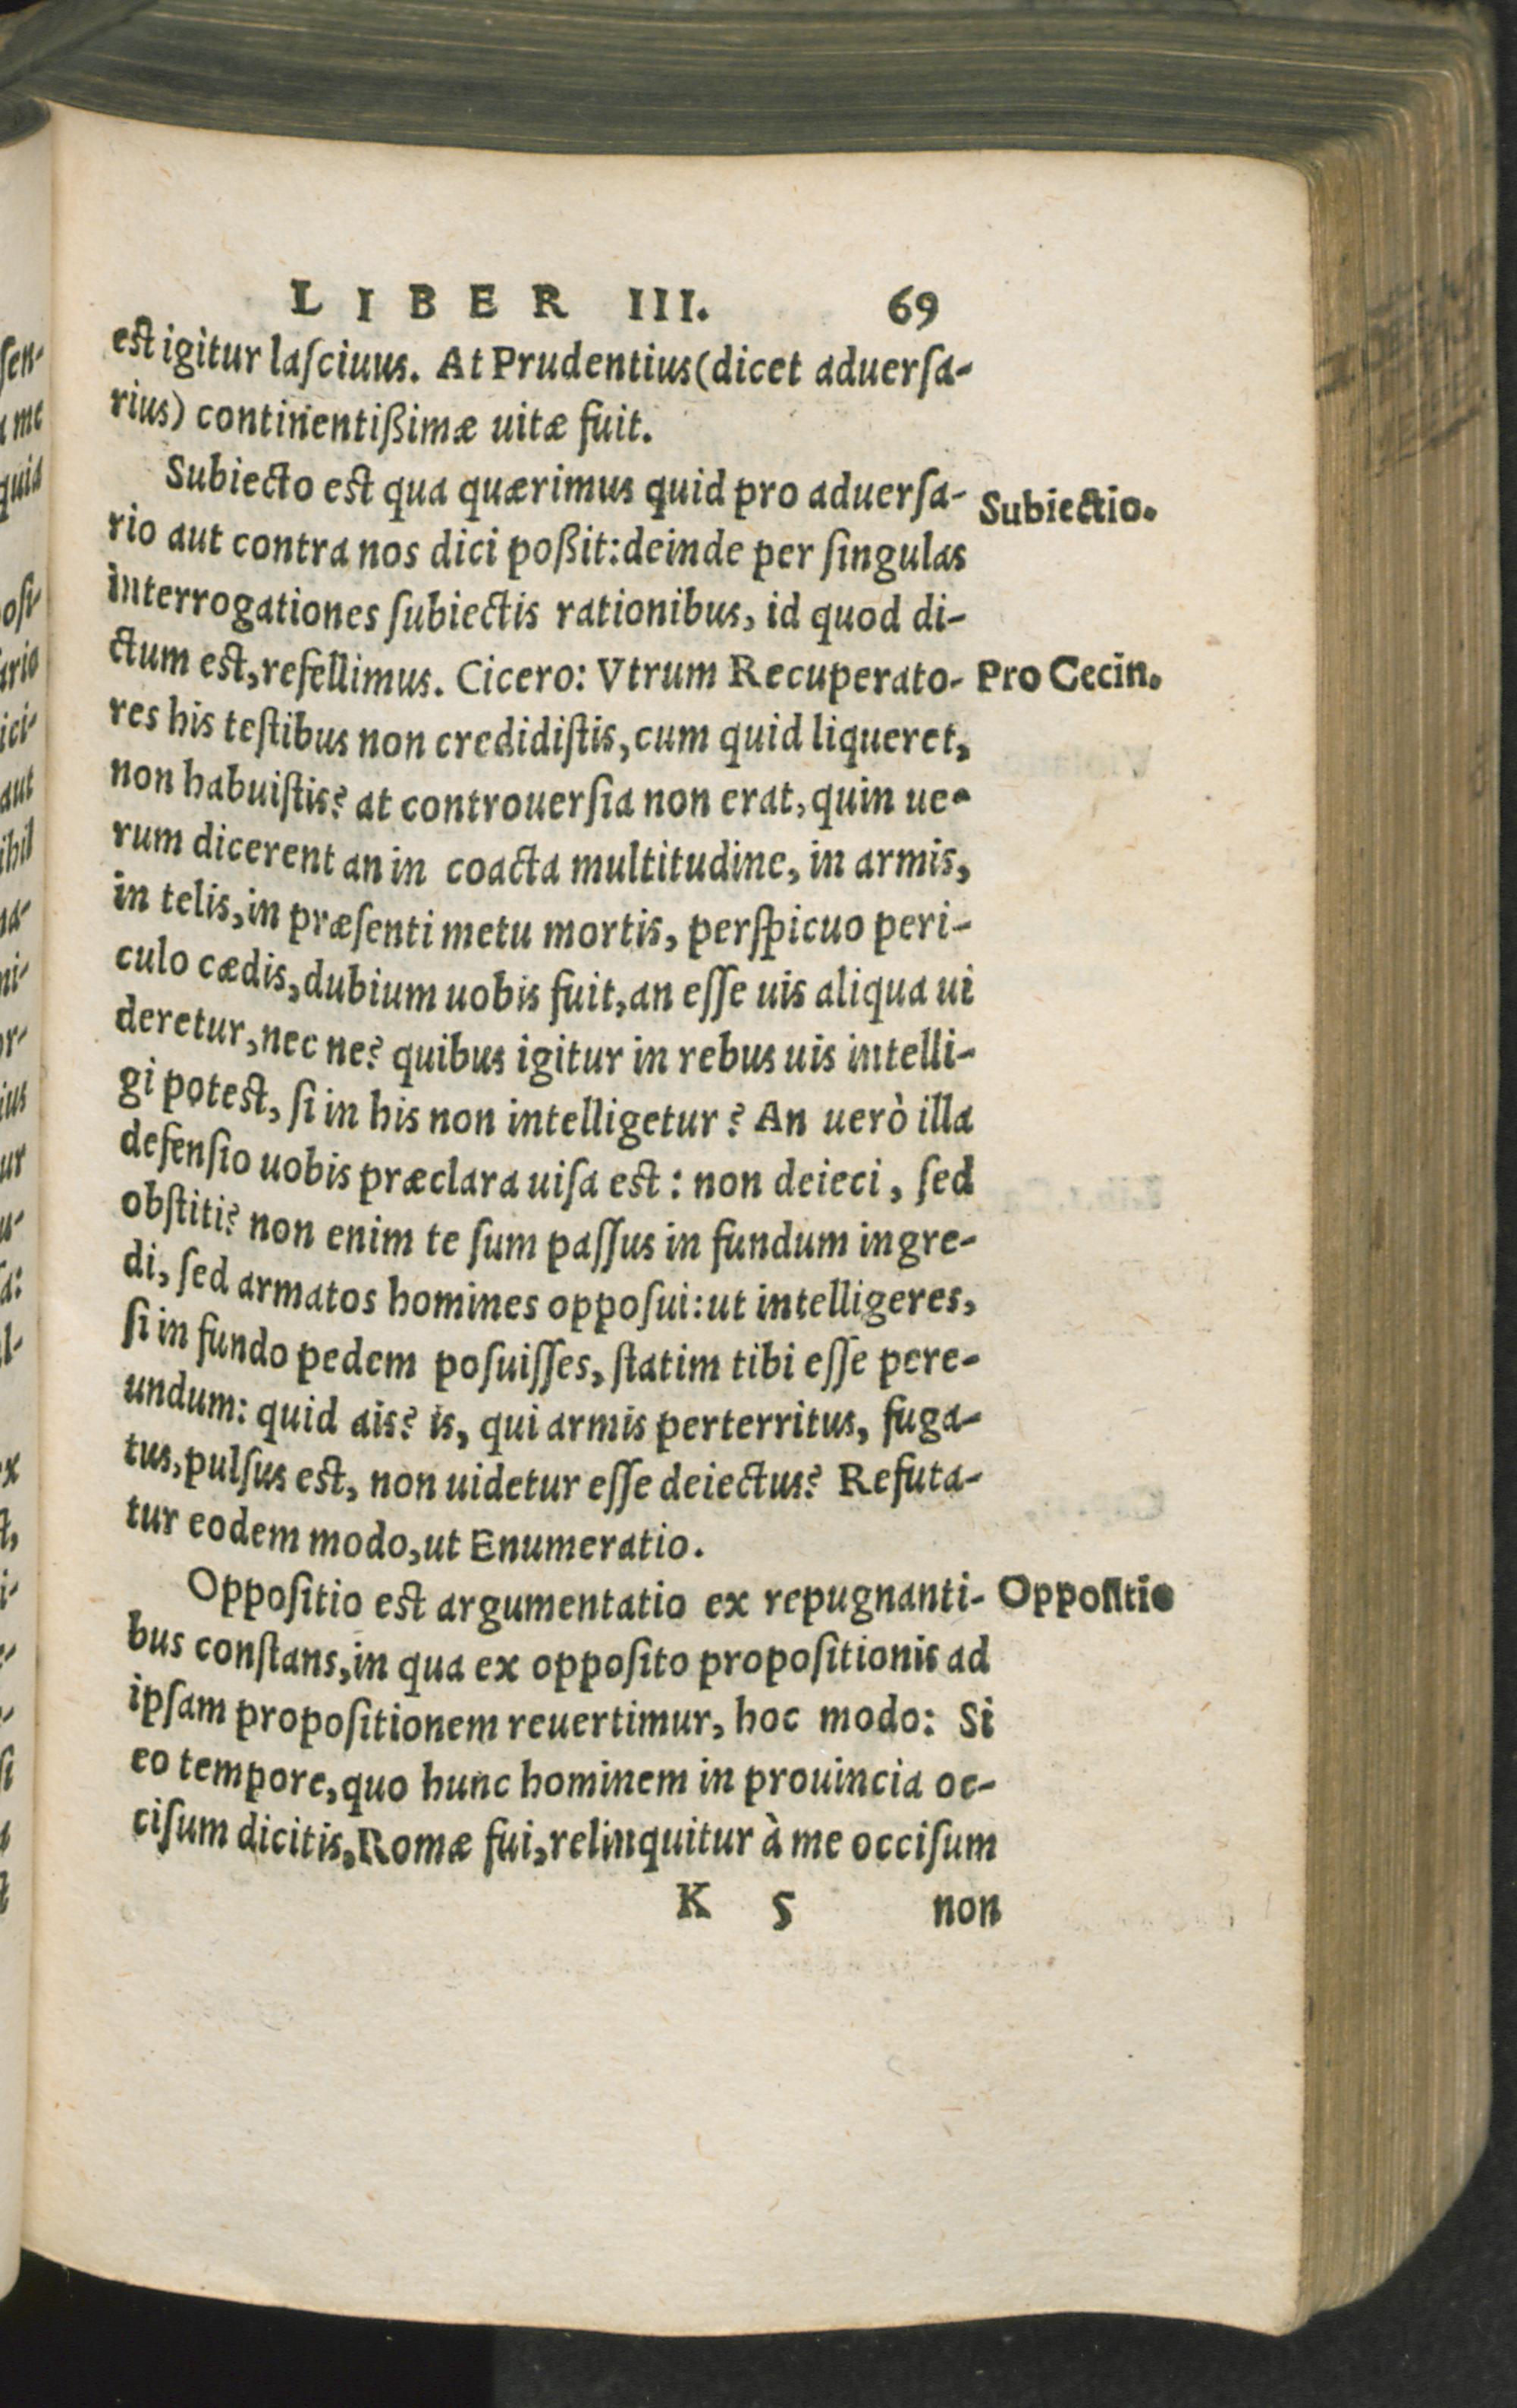 LIBER III. 69
est igitur laſciuus. At Prudentius (dicet aduerſa-
rius) continentißimæ uitæ fuit.
Subiecto est qua quærimus quid pro aduerſa-
Subiectio.
rio aut contra nos dici poßit: deinde per ſingulas
interrogationes ſubiectis rationibus, id quod di-
ctum est, refellimus. Cicero: Vtrum Recuperato-
Pro Cecin.
res his teſtibus non credidiſtis, cum quid liqueret,
non habuiſtis? at controuerſia non erat, quin ue-
rum dicerent an in coacta multitudine, in armis,
in telis, in præſenti metu mortis, perſpicuo peri-
culo cædis, dubium uobis fuit, an eſſe uis aliqua ui
deretur, nec ne? quibus igitur in rebus uis intelli-
gi potest, ſi in his non intelligetur? An uerò illa
defenſio uobis præclara uiſa est: non deieci, ſed
obſtiti? non enim te ſum paſſus in fundum ingre-
di, ſed armatos homines oppoſui: ut intelligeres,
ſi in fundo pedem poſuiſſes, ſtatim tibi eſſe pere-
undum: quid ais? is, qui armis perterritus, fuga-
tus, pulſus est, non uidetur eſſe deiectus? Refuta-
tur eodem modo, ut Enumeratio.
Oppoſitio est argumentatio ex repugnanti-
Oppoſitio
bus conſtans, in qua ex oppoſito propoſitionis ad
ipſam propoſitionem reuertimur, hoc modo: Si
eo tempore, quo hunc hominem in prouincia oc-
ciſum dicitis, Romæ fui, relinquitur à me occiſum
K 5 non